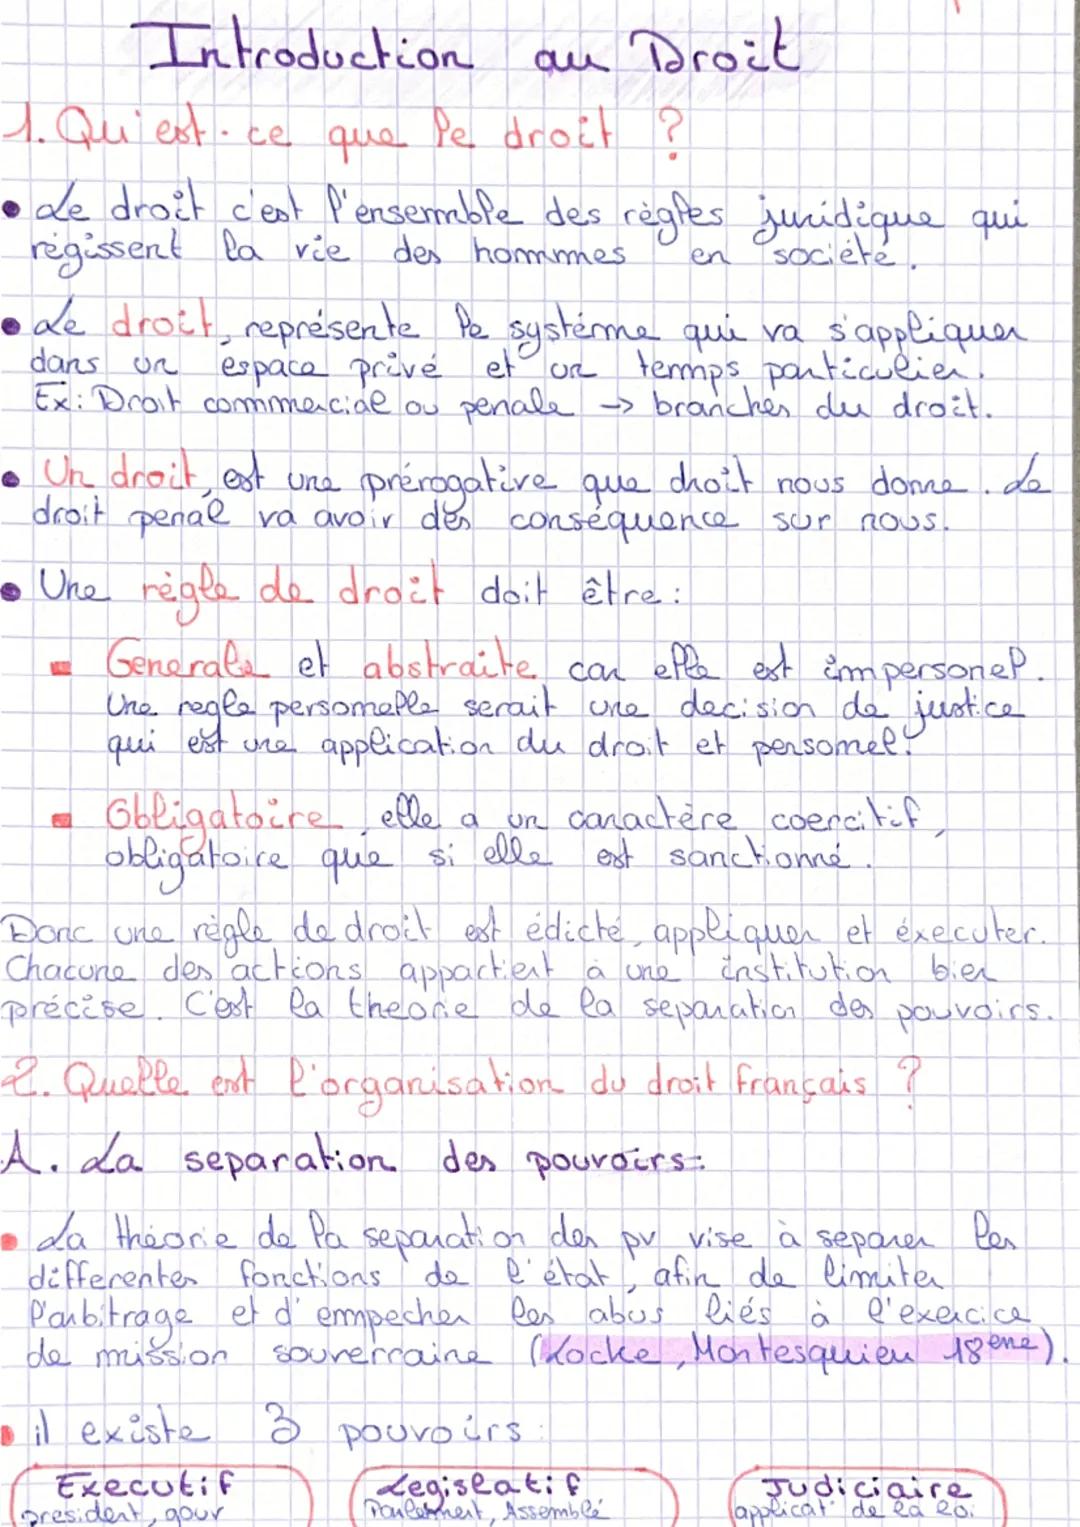 Introduction au Droit
1. Qu'est-ce que le droit ?
• Le droit c'est l'ensemble des règles juridique qui
régissent la vie des hommes en société.
• Le droit, représente le système qui va s'appliquer
dans un espace privé et un temps particulier.
Ex: Droit commerciale ou penale → branches du droit.
• Un droit, est une prérogative que droit nous donne. Le
droit penal va avoir des conséquence sur nous.
• Une règle de droit doit être :
Generale et abstraite car elle est impersonel.
Une regle personnelle serait une decision de justice
qui est une application du droit et personnel.
Obligatoire, elle a un caractère coercitif,
obligatoire que si elle est sanctionné.
Donc une règle de droit est édicté, appliquer et éxecuter.
Chacune des actions appartient à une institution bien
précise. C'est la theorie de la separation des pouvoirs.
2. Quelle est l'organisation du droit français ?
A. La separation des pouvoirs:
• La théorie de la separation des pv vise à separer les
differentes fonctions de l'état, afin de limiter
l'arbitrage et d'empecher les abus liés à l'exercice
de mission souverraine (Locke, Montesquieu 18ène).
• il existe 3 pouvoirs :
Executif Legislatif Judiciaire
president, gouv Parlement, Assemblé applicat° de la loi